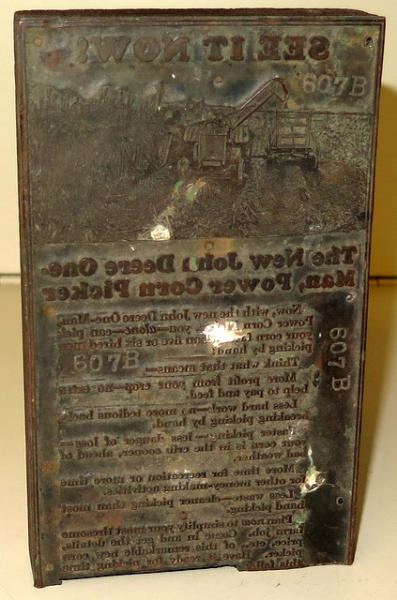 SEE IT NOW!
607B
The New John Deere One-
Man, Power Corn Picker
Now, with the new John Deere One-Man,
Power Corn you—alone—can pick
your corn five or six hired men
picking by hand
607B
607B
Think what that means—
More profit from your crop—no extra
help to pay and feed.
Less hard work—no more tedious back-
breaking picking by hand.
Faster picking—less danger of loss—
your corn is in the crib sooner, ahead of
bad weather.
More time for recreation or more time
for other money-making activities.
Less waste—cleaner picking than most
hand picking.
Plan now to simplify your most tiresome
farm job. Come in and get the details,
price, etc., of this remarkable new corn
picker. Have it ready for picking time
this fall.